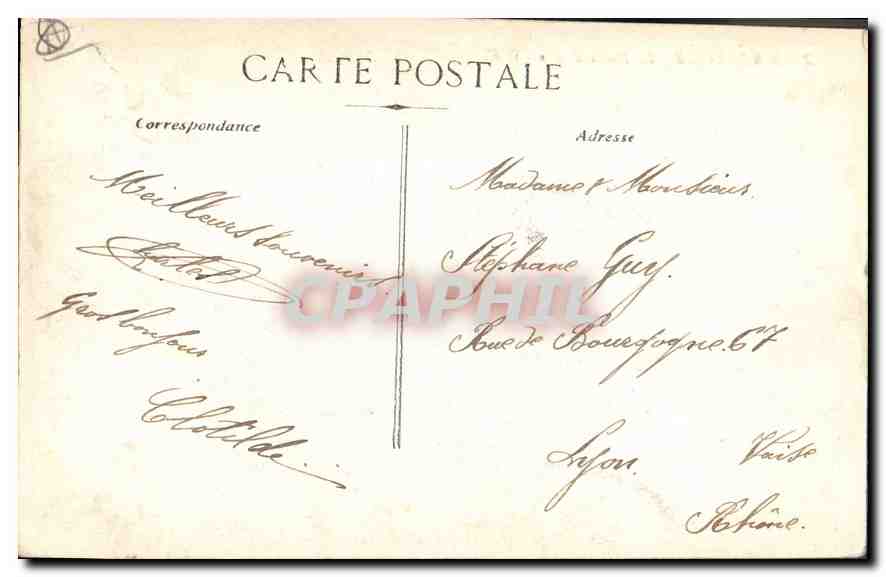 CARTE POSTALE
Correspondance
Meilleurs souvenirs
Clotilde
Adresse
Madame & Monsieur
Stéphane Guy.
Rue de Bourgogne. 67
Lyon. Vaise
Rhône.
CPAPHIL